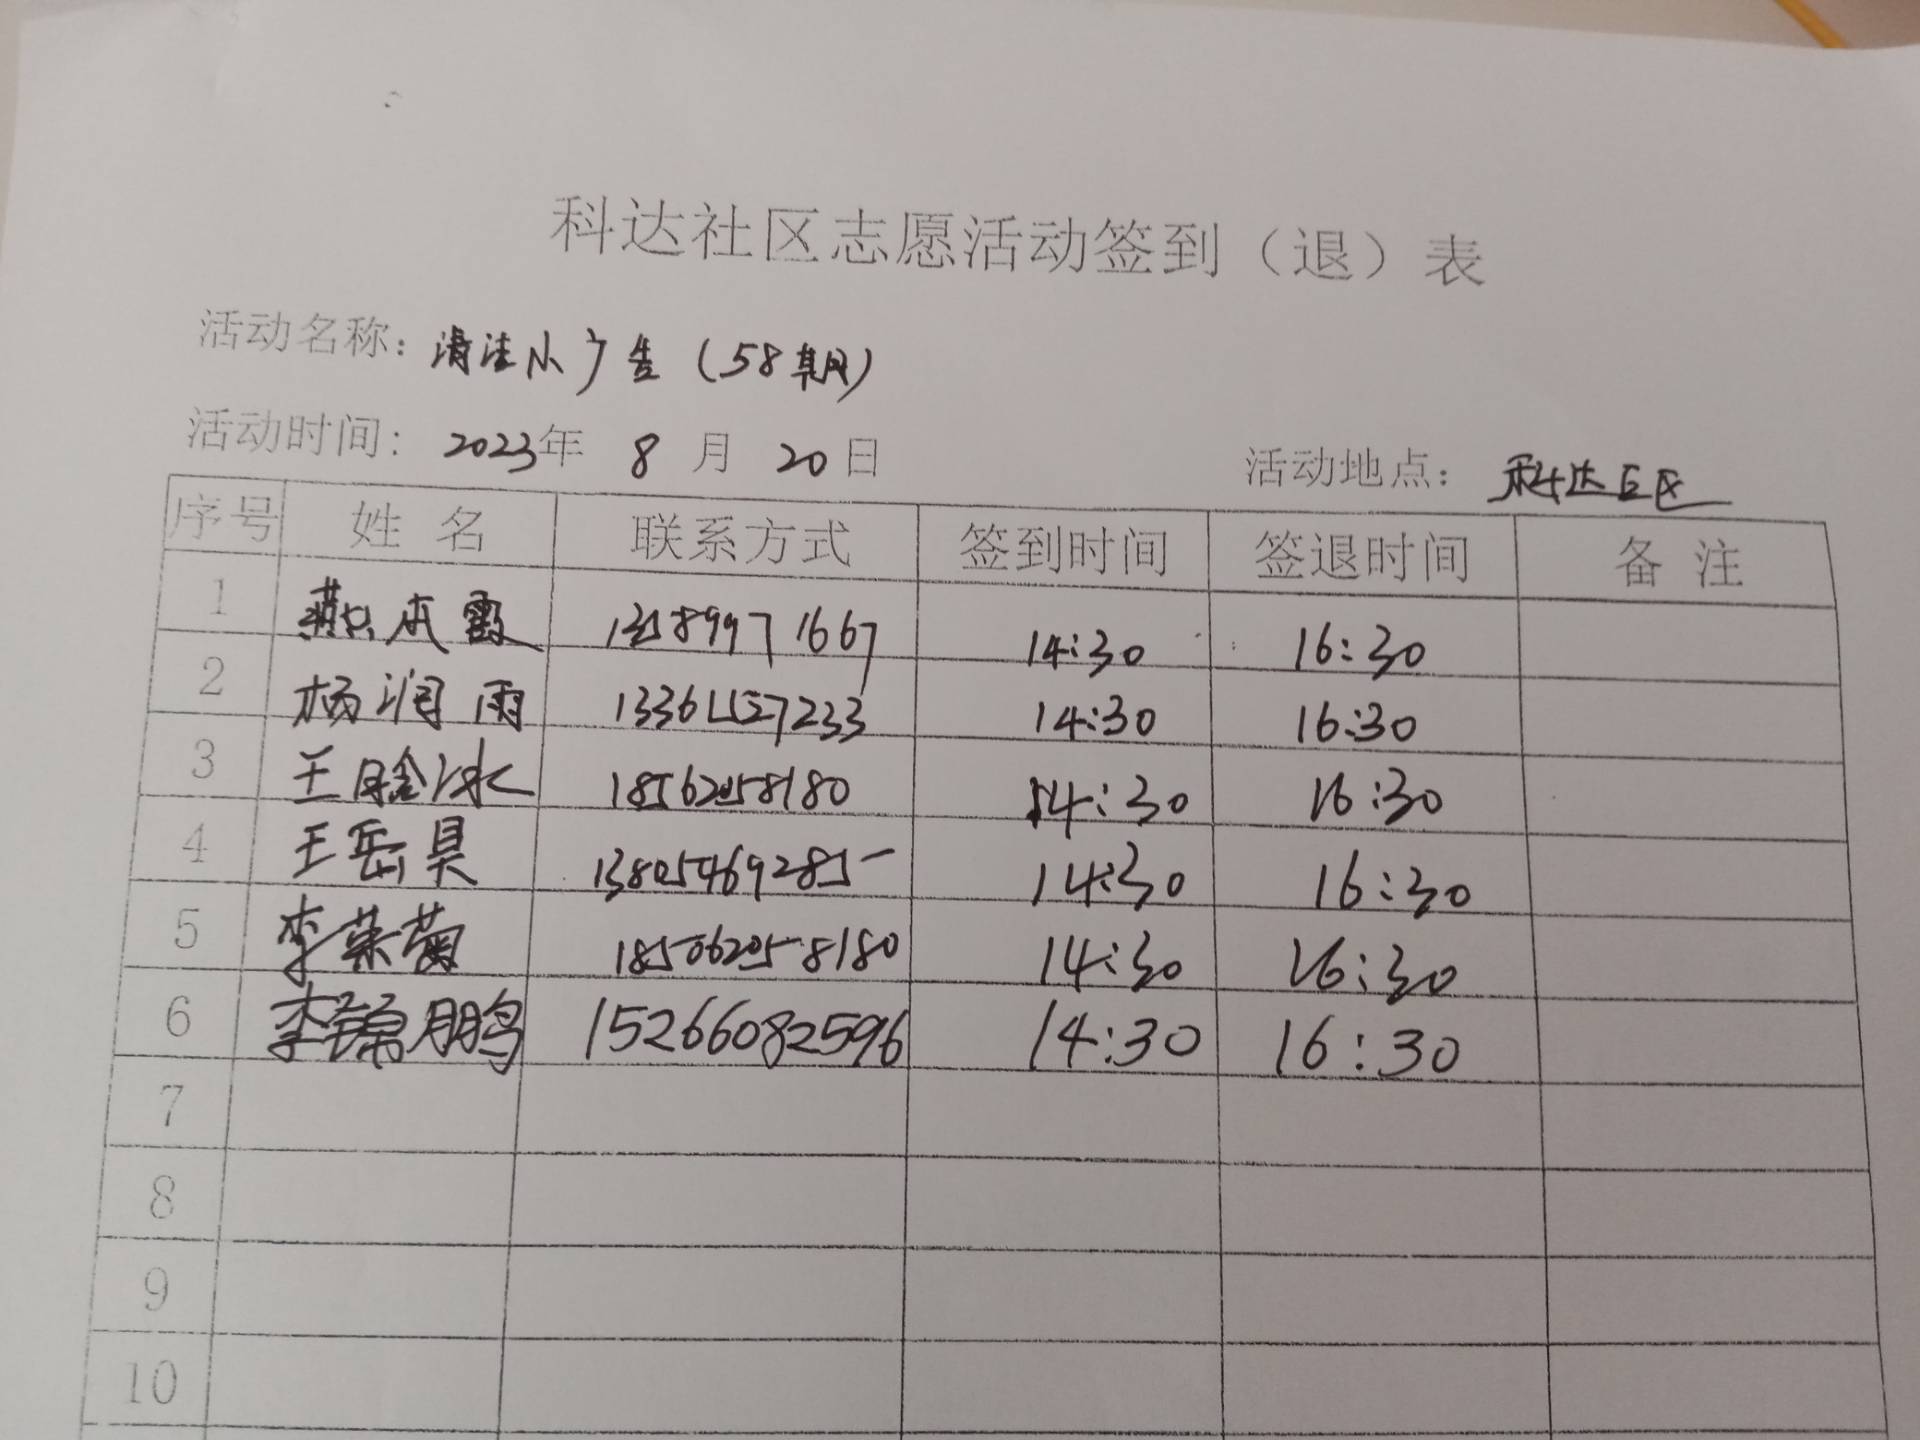 科达社区志愿活动签到（退）表
活动名称：清洁小广告（58期）
活动时间：2023年 8 月 20日 活动地点：科达E区
序号 姓 名 联系方式 签到时间 签退时间 备 注
1 燕本霞 1667 14:30 16:30
2 杨润雨 14:30 16:30
3 王晗冰 18562058180 14:30 16:30
4 王岳昊 13805469285 14:30 16:30
5 李荣菊 14:30 16:30
6 李锦鹏 15266082596 14:30 16:30
7
8
9
10